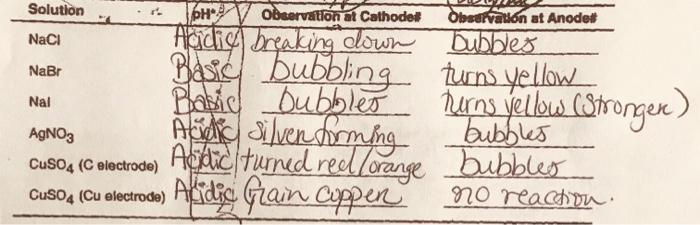 Solution pH Observation at Cathode# Observation at Anode#
NaCl Acidic breaking down bubbles
NaBr Basic bubbling turns yellow
NaI Basic bubbles turns yellow (stronger)
AgNO3 Acidic Silver forming bubbles
CuSO4 (C electrode) Acidic turned red/orange bubbles
CuSO4 (Cu electrode) Acidic Grain copper no reaction.